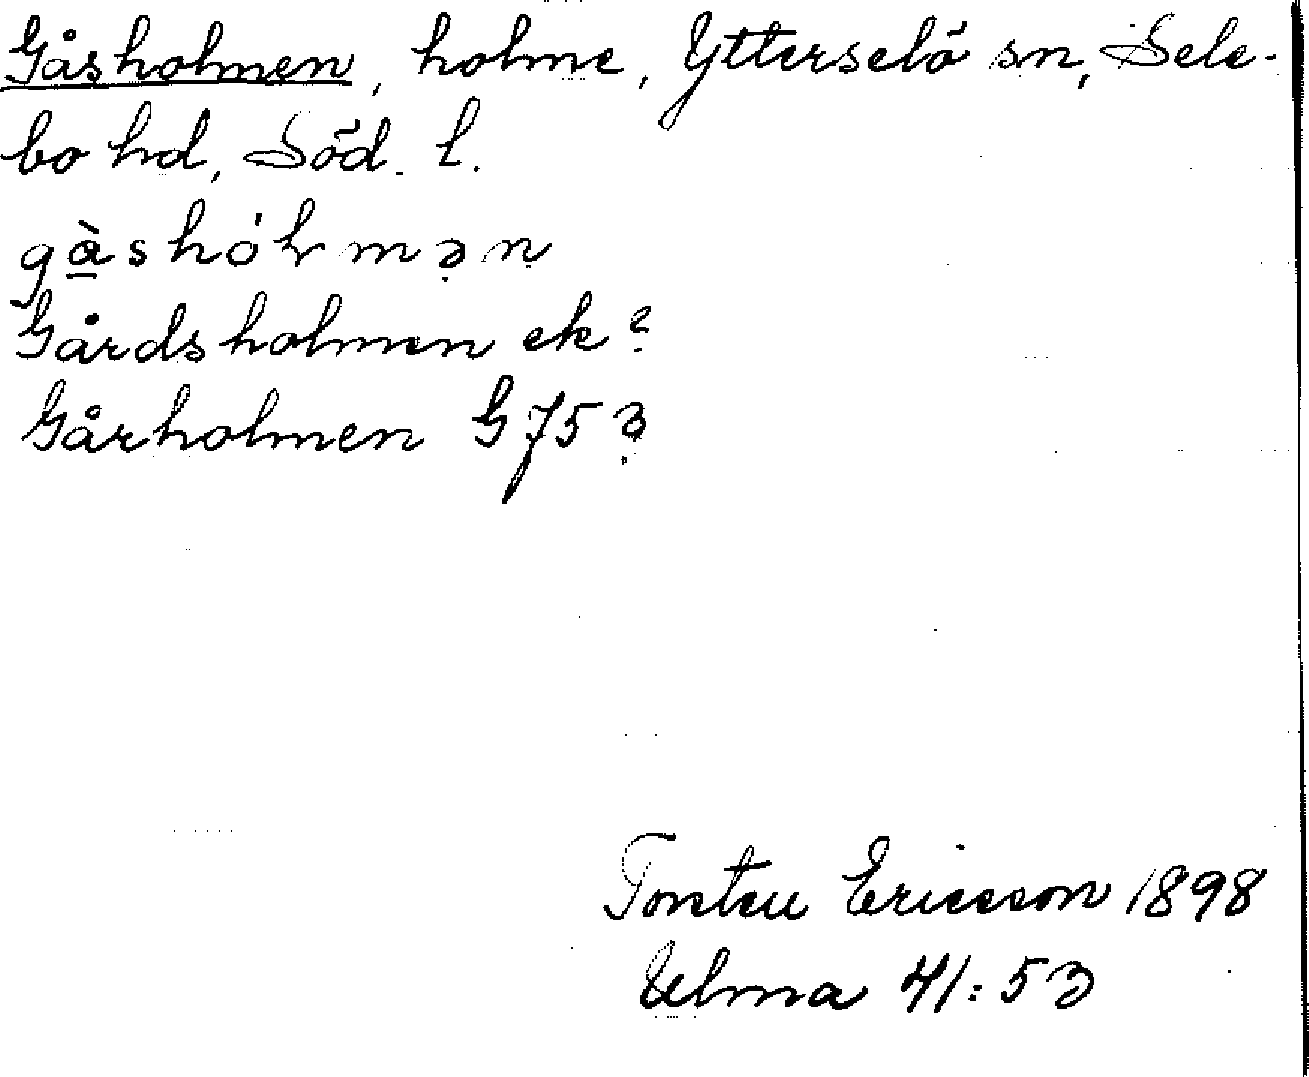 Gåsholmen, holme, Ytterselö sn, Sele-
bo hd, Söd. l.
gå̀shóƚmən
Gårdsholmen ek?
Gårholmen G 75?
Torsten Ericsson 1898
Ulma 41:53